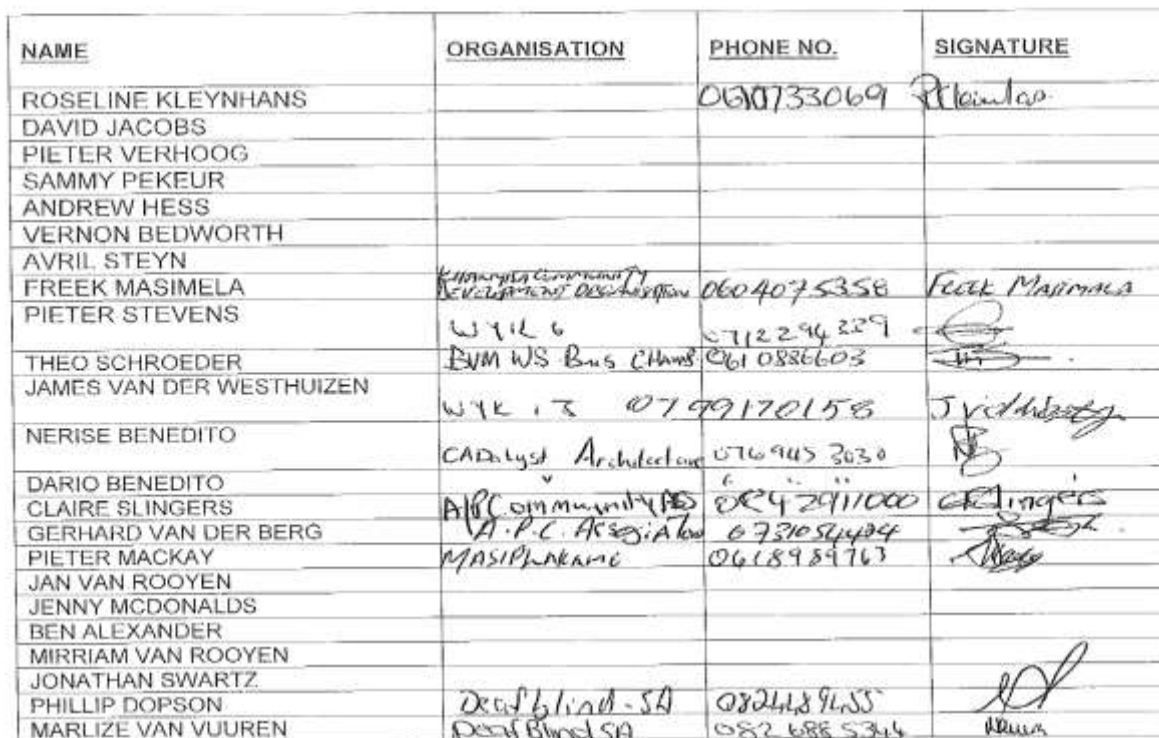 NAME ORGANISATION PHONE NO. SIGNATURE
ROSELINE KLEYNHANS
DAVID JACOBS
PIETER VERHOOG
SAMMY PEKEUR
ANDREW HESS
VERNON BEDWORTH
AVRIL STEYN
FREEK MASIMELA COMMUNITY DEVELOPMENT ORGANISATION 0604075358
PIETER STEVENS WYK 6 0712294229
THEO SCHROEDER BVM WS Bus CHAMB 0610886603
JAMES VAN DER WESTHUIZEN WYK 13 0799170158
NERISE BENEDITO CADalyst Architecture 076 945 3030
DARIO BENEDITO " " "
CLAIRE SLINGERS APC Community
GERHARD VAN DER BERG A.P.C.
PIETER MACKAY MASIPHAKAME 0618989763
JAN VAN ROOYEN
JENNY MCDONALDS
BEN ALEXANDER
MIRRIAM VAN ROOYEN
JONATHAN SWARTZ
PHILLIP DOPSON Deafblind-SA
MARLIZE VAN VUUREN DeafBlind SA 082 688 5344